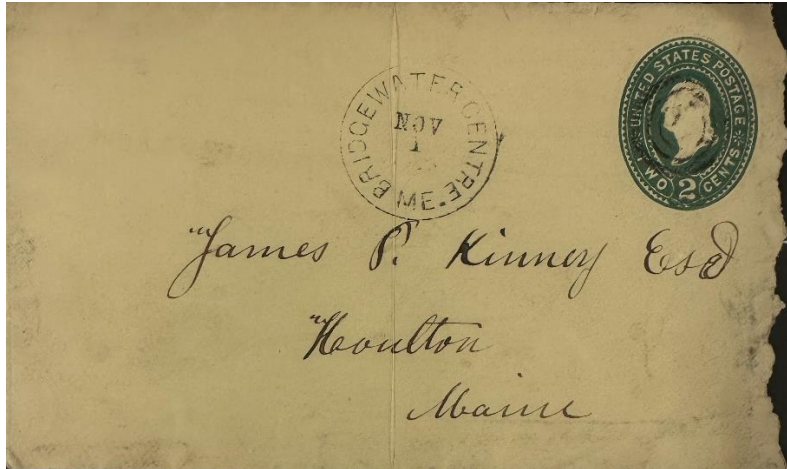 BRIDGEWATER CENTRE ME.
NOV
1
UNITED STATES POSTAGE
TWO 2 CENTS
James P. Kinney Esq
Houlton
Maine